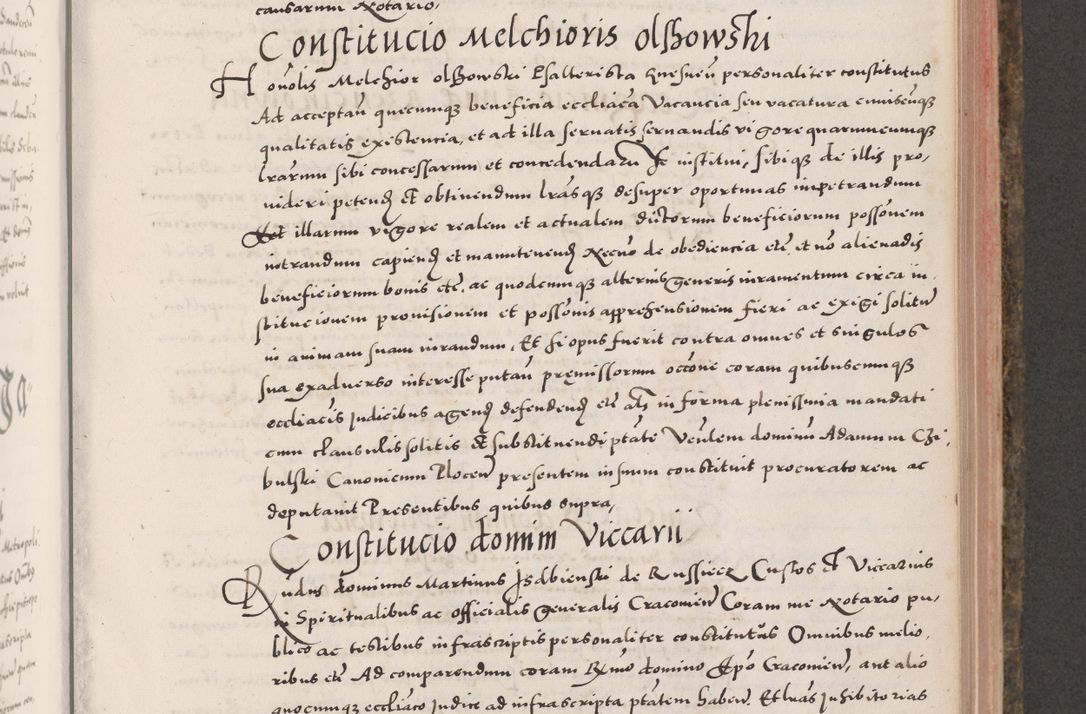 causarum Notario,
Constitucio Melchioris Olschowski
Honolis Melchior olschowski Psalterista Gnesnen personaliter constitutus
Ad acceptan quecumque beneficia eccliaca Vacancia seu vacatura cuiuscunque
qualitatis existencia, et ad illa servatis servandis vigore quarumcumque
lrarum sibi concessarum et concedendaru se institui, sibique de illis pro,
videri petend et obtinendum lrasque desuper oportunas impetrandum
Et illarum vigore realem et actualem dictorum beneficiorum possonem
intrandum capiend et manutenend Necno de obediencia etc et no alienadis
beneficiorum bonis etc, ac quodcumque alterius generis iuramentum circa in
stitucionem provisionem et possonis apprehensionem fieri ac exigi solitu
in animam suam iurandum, Et si opus fuerit contra omnes et singulos
sua exadverso interesse putan premissorum occone coram quibuscumque
eccliacis Judicibus agend defendend etc als in forma plenissima mandati
cum clausulis solitis et substituendi ptate Venlem dominu Adamum Czi,
bulski Canonicum Plocen presentem in suum constituit procuratorem ac
deputavit Presentibus quibus supra,
Constitucio domini Viccarii
Rndus dominus Martinus Isdbienski de Russiecz Custos et Viccarius
in Spiritualibus ac officialis generalis Cracovien Coram me Notario pu,
blico ac testibus infrascriptis personaliter constitutus Omnibus melio,
ribus etc Ad comparendum coram Rmo domino Epo Cracovien, aut alio
quocumque eccliaco Judice ad infrascripta ptatem haben. Et lras Inhibitorias